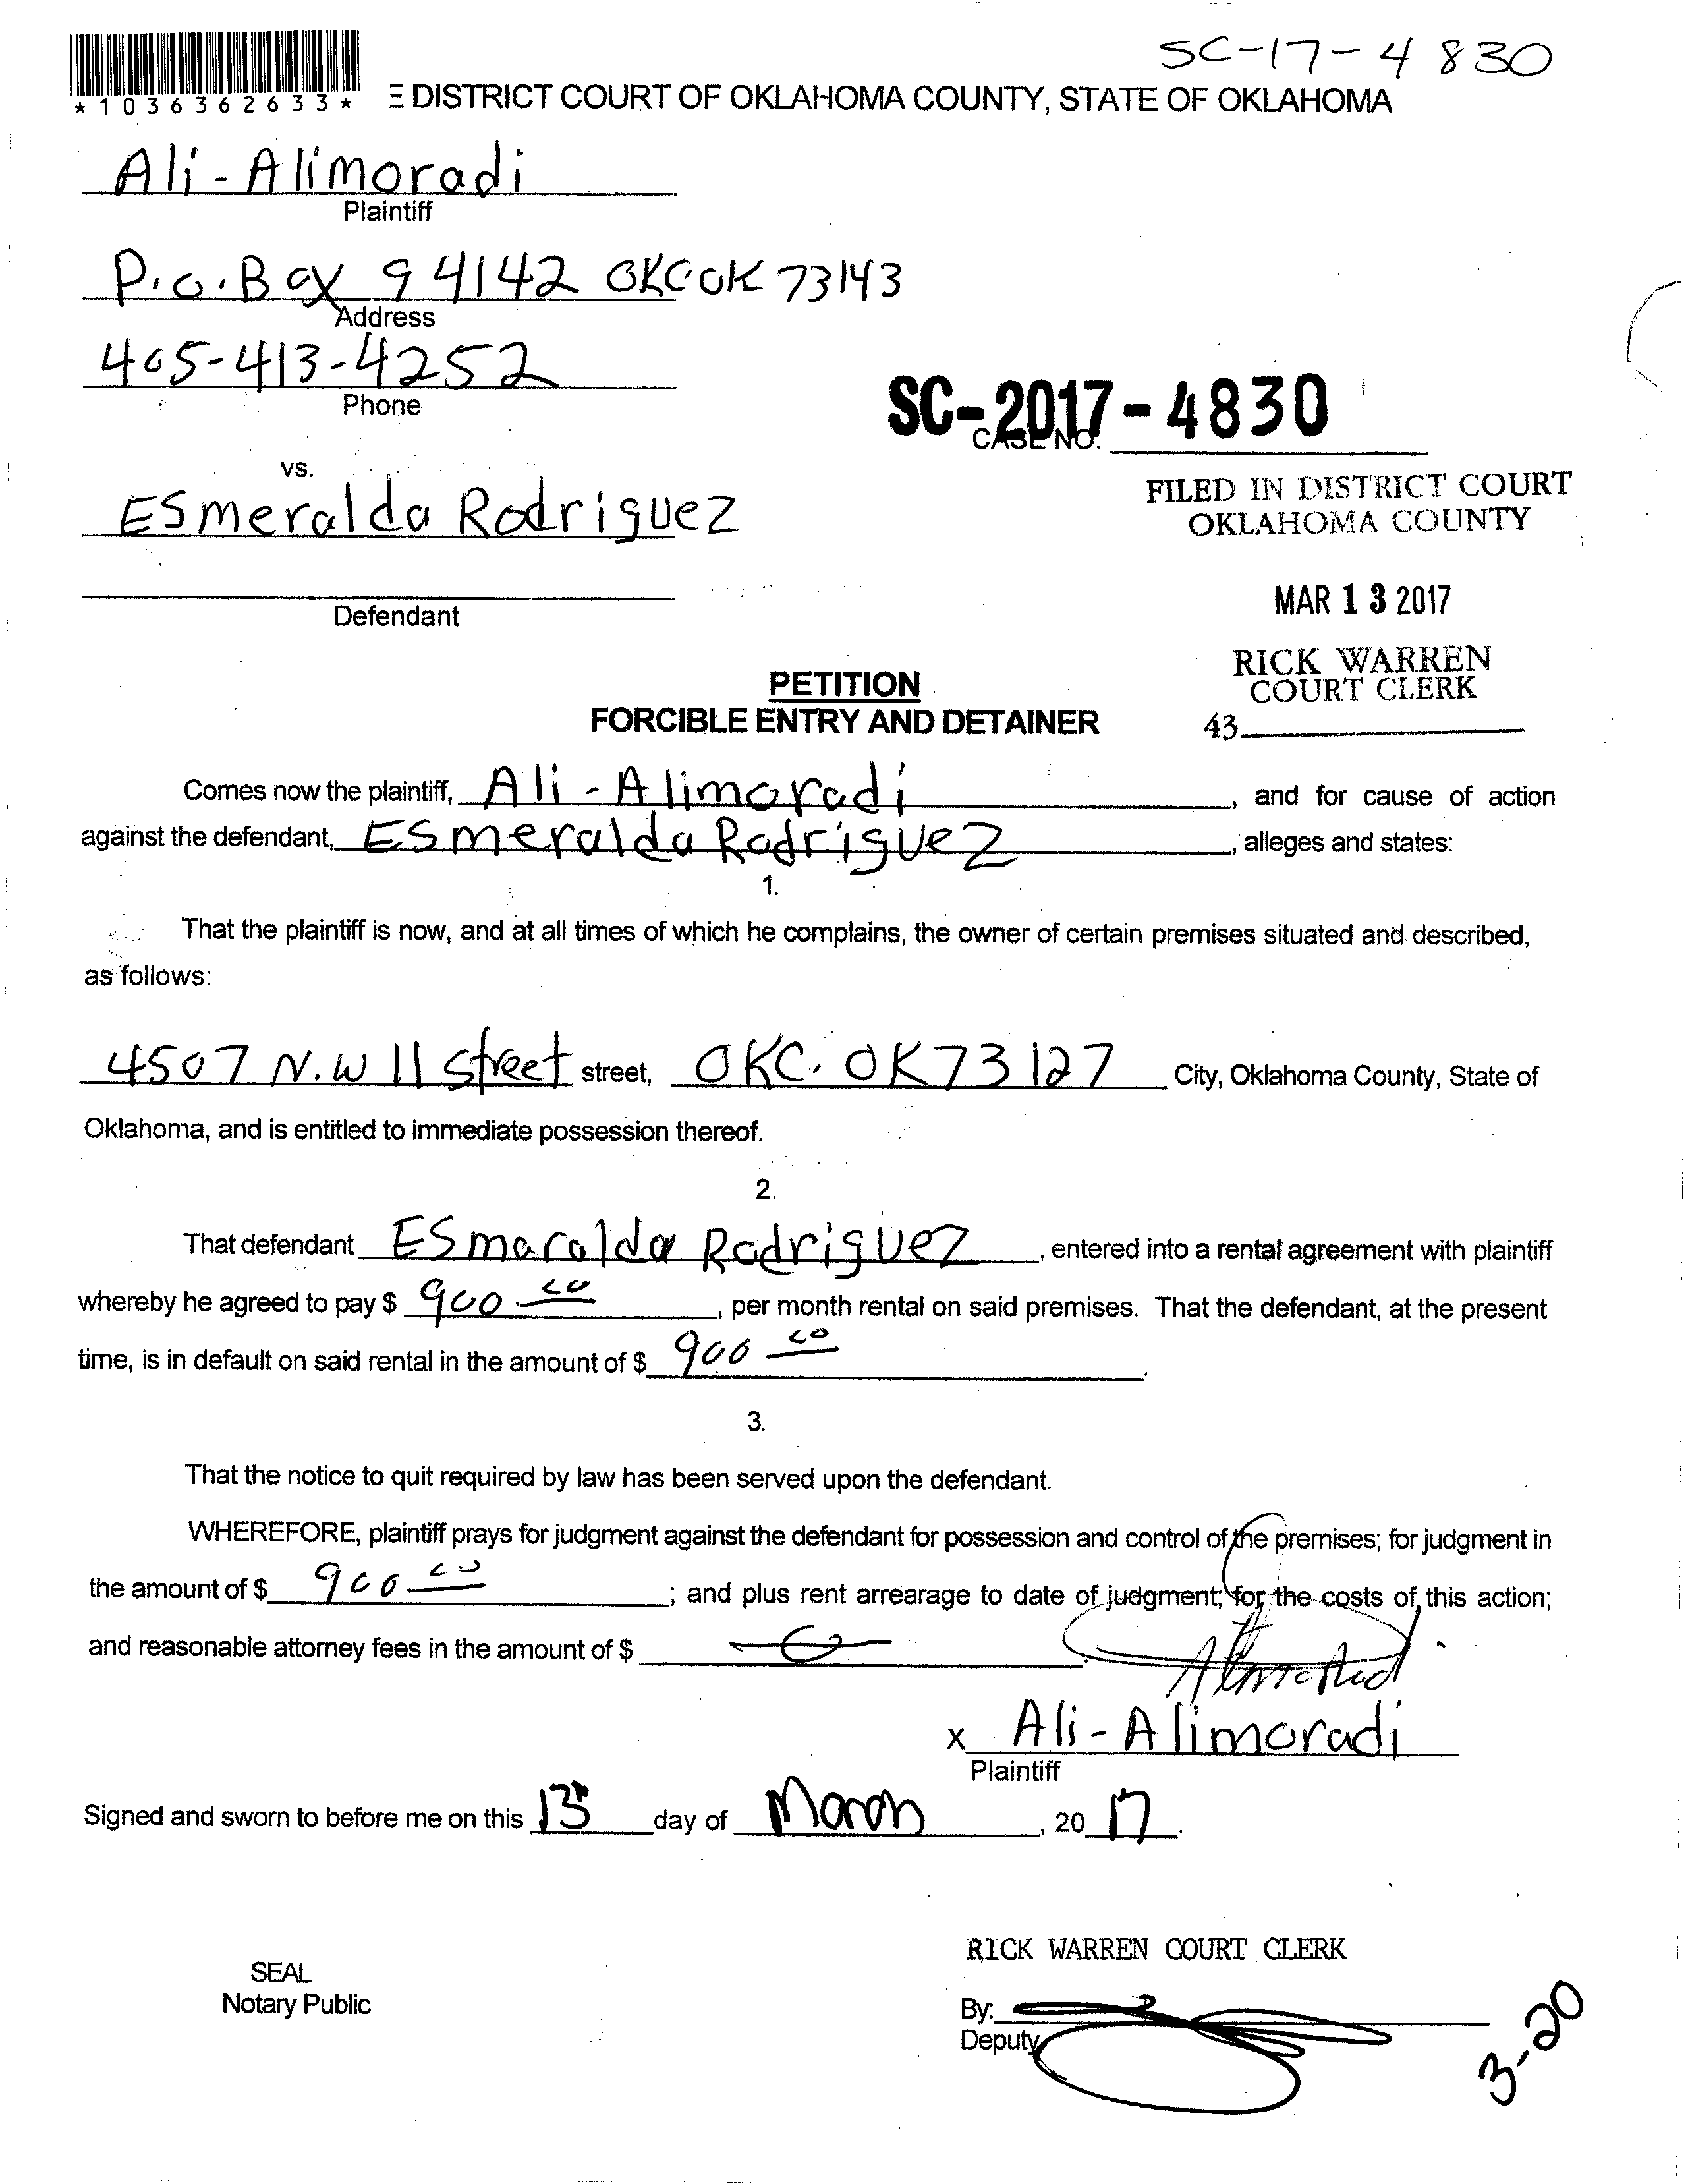 SC-17-4830
*1036362633*
E DISTRICT COURT OF OKLAHOMA COUNTY, STATE OF OKLAHOMA
Ali-Alimoradi
Plaintiff
P.O.Box 94142 OKC OK 73143
Address
405-413-4252
Phone
SC-2017-4830
CASE NO.
vs.
ESmeralda Rodriguez
FILED IN DISTRICT COURT
OKLAHOMA COUNTY
Defendant
MAR 13 2017
RICK WARREN
COURT CLERK
43
PETITION
FORCIBLE ENTRY AND DETAINER
Comes now the plaintiff, Ali-Alimoradi, and for cause of action
against the defendant, ESmeralda Rodriguez, alleges and states:
1.
That the plaintiff is now, and at all times of which he complains, the owner of certain premises situated and described,
as follows:
4507 N.W 11 street street, OKC. OK 73127 City, Oklahoma County, State of
Oklahoma, and is entitled to immediate possession thereof.
2.
That defendant ESmaralda Rodriguez, entered into a rental agreement with plaintiff
whereby he agreed to pay $ 900 00, per month rental on said premises. That the defendant, at the present
time, is in default on said rental in the amount of $ 900 00.
3.
That the notice to quit required by law has been served upon the defendant.
WHEREFORE, plaintiff prays for judgment against the defendant for possession and control of the premises; for judgment in
the amount of $ 900 00; and plus rent arrearage to date of judgment; for the costs of this action;
and reasonable attorney fees in the amount of $ 0.
x Ali-Alimoradi
Plaintiff
Signed and sworn to before me on this 13 day of March, 20 17.
RICK WARREN COURT CLERK
SEAL
Notary Public
By:
Deputy
3-20